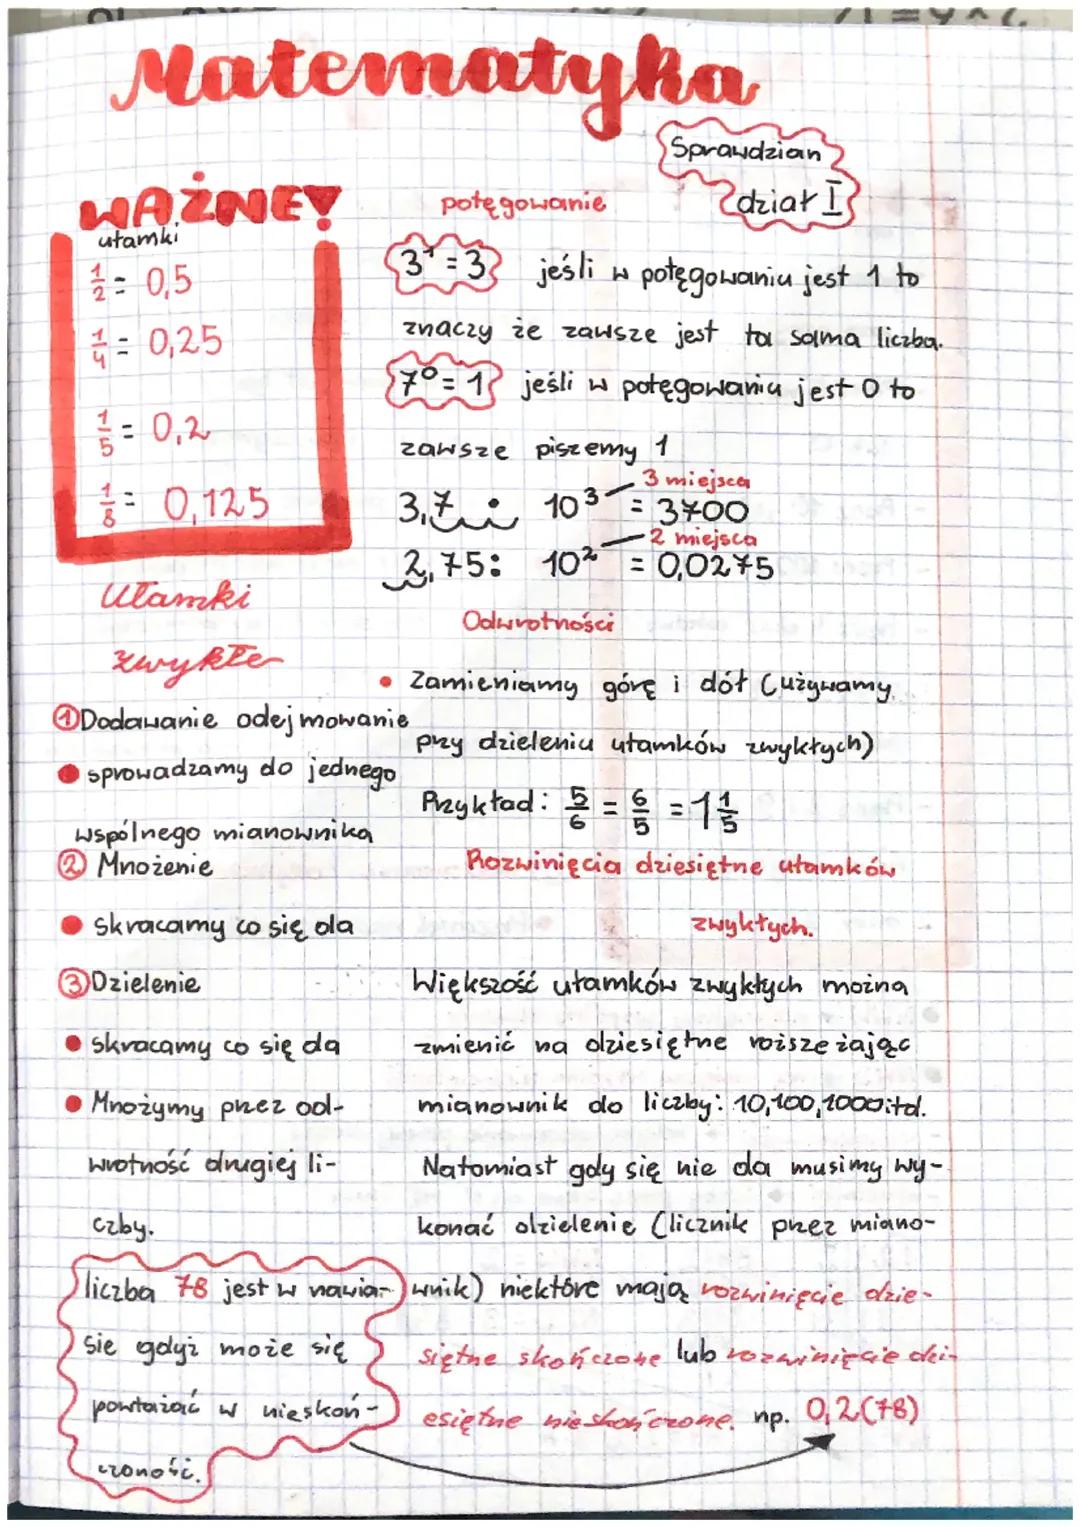 Matematyka
Sprawdzian
dział I
WAŻNE!
ułamki
1/2 = 0,5
1/4 = 0,25
1/5 = 0,2
1/8 = 0,125
potęgowanie
3¹ = 3 jeśli w potęgowaniu jest 1 to
znaczy że zawsze jest ta sama liczba.
7⁰ = 1 jeśli w potęgowaniu jest 0 to
zawsze piszemy 1
3 miejsca
3,7 · 10³ = 3700
2 miejsca
2,75 : 10² = 0,0275
Odwrotności
• Zamieniamy górę i dół (używamy
przy dzieleniu ułamków zwykłych)
Przykład: 5/6 = 6/5 = 1 1/5
Ułamki
zwykłe
① Dodawanie odejmowanie
• sprowadzamy do jednego
wspólnego mianownika
② Mnożenie
• skracamy co się da
③ Dzielenie
• skracamy co się da
• Mnożymy przez od-
wrotność drugiej li-
czby.
Rozwinięcia dziesiętne ułamków
zwykłych.
Większość ułamków zwykłych można
zmienić na dziesiętne rozszeżając
mianownik do liczby: 10,100,1000 itd.
Natomiast gdy się nie da musimy wy-
konać dzielenie (licznik przez miano-
wnik) niektóre mają rozwinięcie dzie-
siętne skończone lub rozwinięcie dzi-
esiętne nieskończone. np. 0,2(78)
liczba 78 jest w nawia-
sie gdyż może się
powtażać w nieskoń-
czoność.